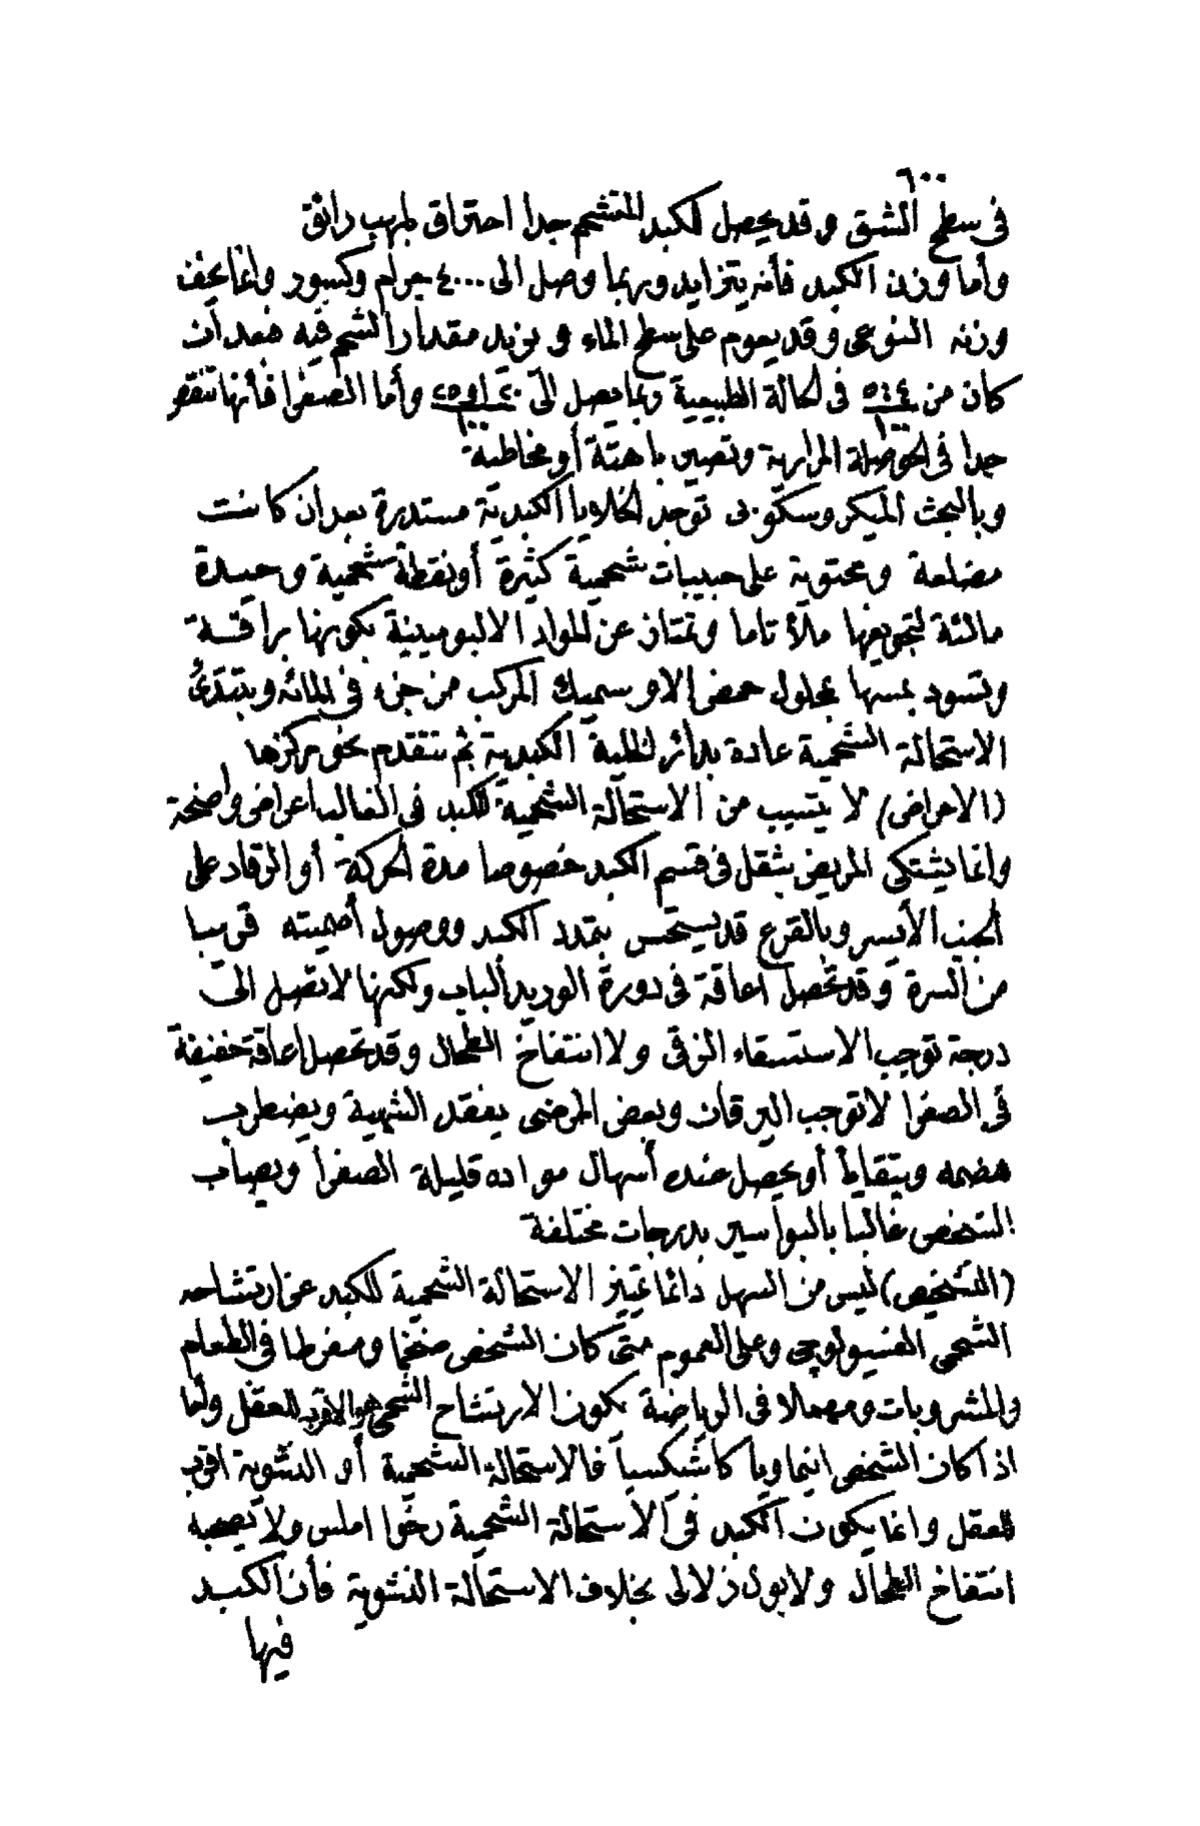 ٦٠٠
فى سطح الشق وقد يحصل للكبد المتشحم جدا احتراق بلهب رائق
وأما وزن الكبد فأنه يتزايد وربما وصل الى ٤٠٠٠ جرام وكسور وانما يخف
وزنه النوعى وقد يعوم على سطح الماء ويزيد مقدار الشحم فيه فبعد أن
كان من فى الحالة الطبيعية ربما يصل الى وأما الصفرا فأنها تنقص
جدا فى الحوصلة المرارية وتصير باهتة أو مخاطية
وبالبحث الميكروسكوبى توجد الخلايا الكبدية مستديرة بعد ان كانت
مضلعة ومحتوية على حبيبات شحمية كثيرة أو نقطة شحمية وحيدة
مالئة لتجويفها ملأ تاما وتمتاز عن المواد الالبومينية بكونها براقة
وتسود بمسها بمحلول حمض الاوسميك المركب من جزء فى المائه ويبتدئ
الاستحالة الشحمية عادة بدائر الخلية الكبدية ثم تتقدم نحو مركزها
(الاعراض) لا يتسبب من الاستحالة الشحمية للكبد فى الغالب اعراض واضحة
وانما يشتكى المريض بثقل فى قسم الكبد خصوصا مدة الحركة أو الرقاد على
الجنب الأيسر وبالقرع قد يستحس بتمدد الكبد ووصول أصميته قريبا
من السرة وقد تحصل اعاقة فى دورة الوريد الباب ولكنها لا تصل الى
درجة توجب الاستسقاء الزقى ولا انتفاخ الطحال وقد تحصل اعاقة خفيفة
فى الصفرا لا توجب اليرقان وبعض المرضى يفقد الشهية ويضطرب
هضمه ويتقايأ أو يحصل عنده أسهال مواده قليلة الصفرا ويصاب
الشخص غالبا بالبواسير بدرجات مختلفة
(التشخيص) ليس من السهل دائما تمييز الاستحالة الشحمية للكبد عن ارتشاحه
الشحمى الفسيولوجى وعلى العموم متى كان الشخص ضخما ومفرطا فى الطعام
والمشروبات ومهملا فى الرياضة يكون الارتشاح الشحمى هو الاقرب للعقل وأما
اذا كان الشخص انيماويا كاشكسيا فالاستحالة الشحمية أو النشوية اقرب
للعقل وانما يكون الكبد فى الاستحالة الشحمية رخوا املس ولا يصحبه
انتفاخ الطحال ولا بول زلالى بخلاف الاستحالة النشوية فأن الكبد
فيها